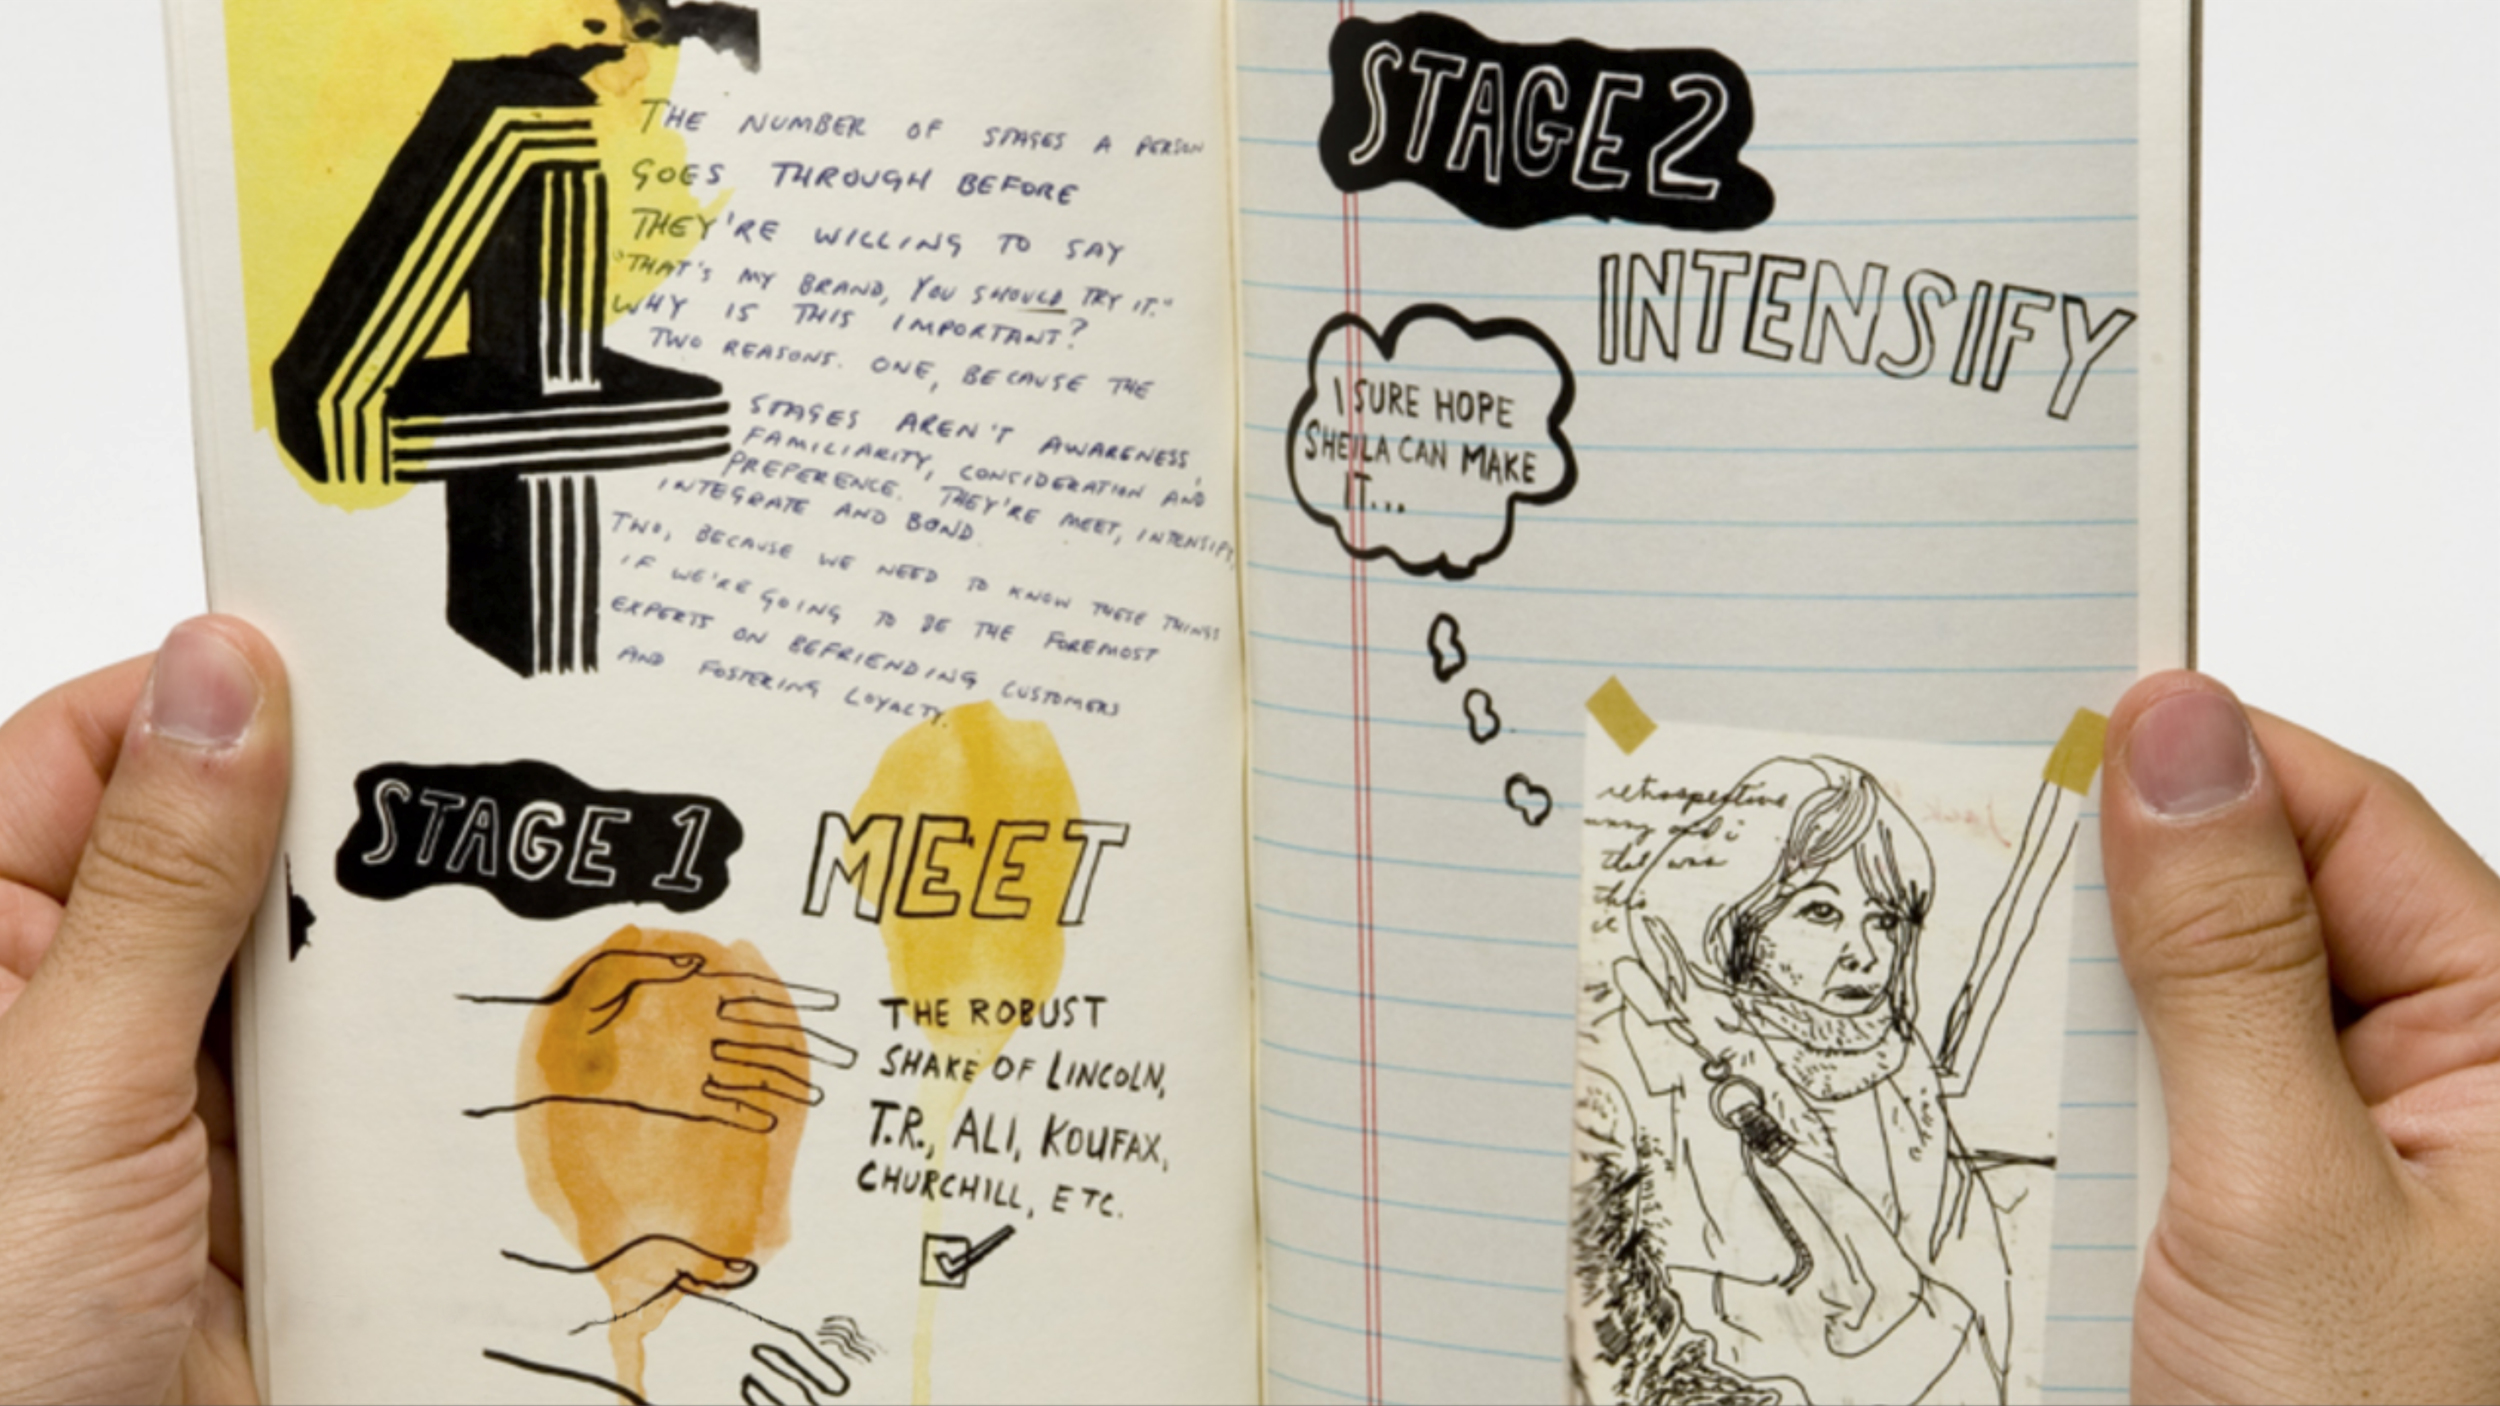 4
THE NUMBER OF STAGES A PERSON
GOES THROUGH BEFORE
THEY'RE WILLING TO SAY
"THAT'S MY BRAND, YOU SHOULD TRY IT."
WHY IS THIS IMPORTANT?
TWO REASONS. ONE, BECAUSE THE
STAGES AREN'T AWARENESS,
FAMILIARITY, CONSIDERATION AND
PREPERENCE. THEY'RE MEET, INTENSIFY,
INTEGRATE AND BOND.
TWO, BECAUSE WE NEED TO KNOW THESE THINGS
IF WE'RE GOING TO BE THE FOREMOST
EXPERTS ON BEFRIENDING CUSTOMERS
AND FOSTERING LOYALTY.
STAGE 1 MEET
THE ROBUST
SHAKE OF LINCOLN,
T.R., ALI, KOUFAX,
CHURCHILL, ETC.
STAGE 2
INTENSIFY
I SURE HOPE
SHEILA CAN MAKE
IT...
retrospective
and i
that was
this